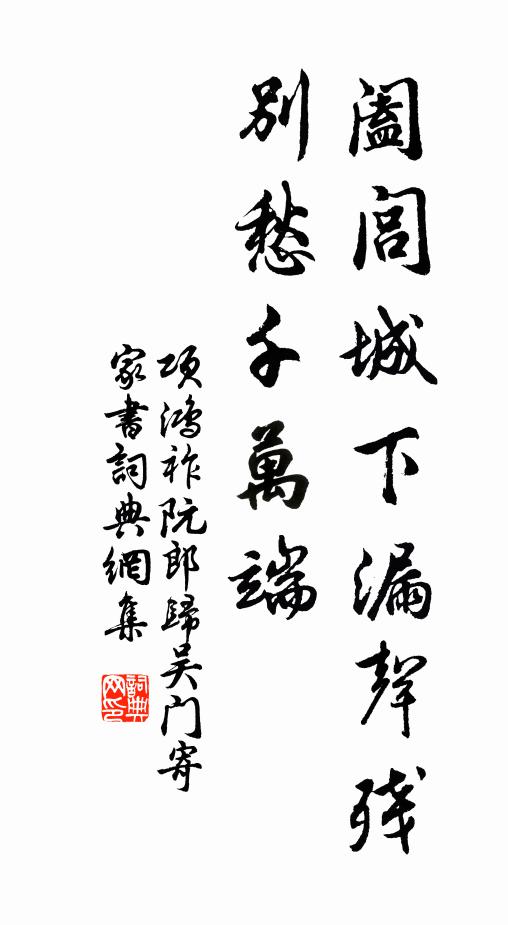 闔閭城下漏聲殘
別愁千萬端
項鴻祚阮郎歸吴門寄
家書詞典網集
詞典
网印